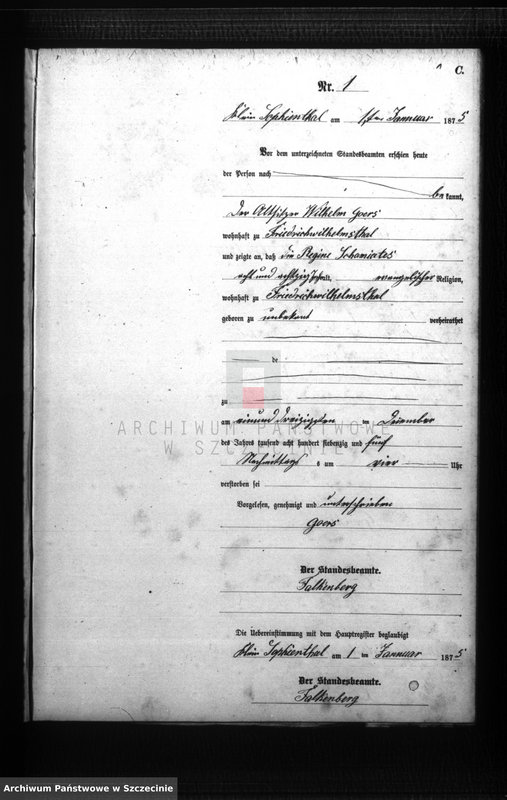 C.
Nr. 1
Klein Sophienthal am 1ten Januar 1875
Vor dem unterzeichneten Standesbeamten erschien heute
der Person nach
bekannt,
Der Altsitzer Wilhelm Goers
wohnhaft zu Friedrichwilhelmsthal
und zeigte an, daß die Regine
acht und achtzig Jahre alt, evangelischer Religion,
wohnhaft zu Friedrichwilhelmsthal
geboren zu unbekant verheirathet
de
zu
am einund dreizigsten im Dezember
des Jahres tausend acht hundert siebenzig und fünf
Nachmittags s um vier Uhr
verstorben sei
Vorgelesen, genehmigt und unterschrieben
Goers
Der Standesbeamte.
Falkenberg
Die Uebereinstimmung mit dem Hauptregister beglaubigt
Klein Sophienthal am 1 ten Januar 1875
Der Standesbeamte.
Falkenberg
ARCHIWUM PAŃSTWOWE
W SZCZECINIE
Archiwum Państwowe w Szczecinie